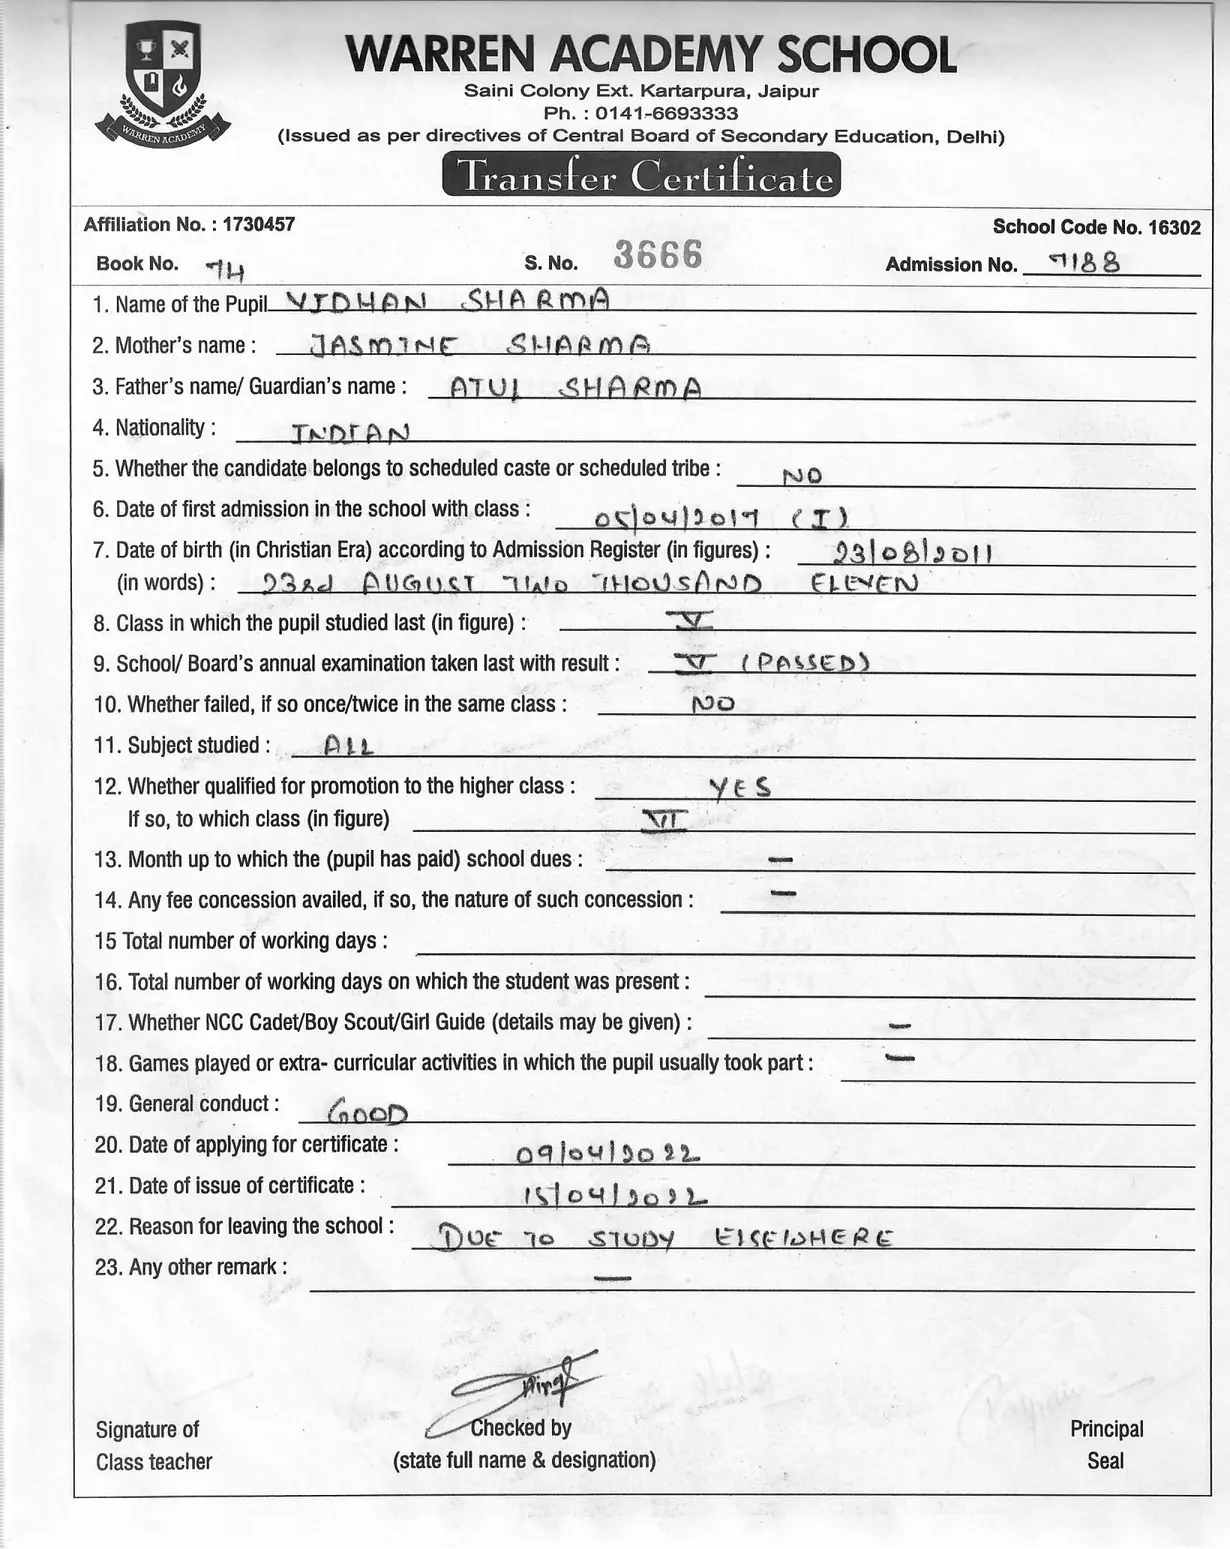 WARREN ACADEMY
WARREN ACADEMY SCHOOL
Saini Colony Ext. Kartarpura, Jaipur
Ph. : 0141-6693333
(Issued as per directives of Central Board of Secondary Education, Delhi)
Transfer Certificate
Affiliation No. : 1730457 School Code No. 16302
Book No. 74 S. No. 3666 Admission No. 7188
1. Name of the Pupil VIDHAN SHARMA
2. Mother's name : JASMINE SHARMA
3. Father's name/ Guardian's name : ATUL SHARMA
4. Nationality : INDIAN
5. Whether the candidate belongs to scheduled caste or scheduled tribe : NO
6. Date of first admission in the school with class : 05/04/2017 (I)
7. Date of birth (in Christian Era) according to Admission Register (in figures) : 23/08/2011
(in words) : 23rd AUGUST TWO THOUSAND ELEVEN
8. Class in which the pupil studied last (in figure) : V
9. School/ Board's annual examination taken last with result : V (PASSED)
10. Whether failed, if so once/twice in the same class : NO
11. Subject studied : ALL
12. Whether qualified for promotion to the higher class : YES
If so, to which class (in figure) VI
13. Month up to which the (pupil has paid) school dues : —
14. Any fee concession availed, if so, the nature of such concession : —
15 Total number of working days :
16. Total number of working days on which the student was present :
17. Whether NCC Cadet/Boy Scout/Girl Guide (details may be given) : —
18. Games played or extra- curricular activities in which the pupil usually took part : —
19. General conduct : GOOD
20. Date of applying for certificate : 09/04/2022
21. Date of issue of certificate : 15/04/2022
22. Reason for leaving the school : DUE TO STUDY ELSEWHERE
23. Any other remark : —
Signature of Checked by Principal
Class teacher (state full name & designation) Seal